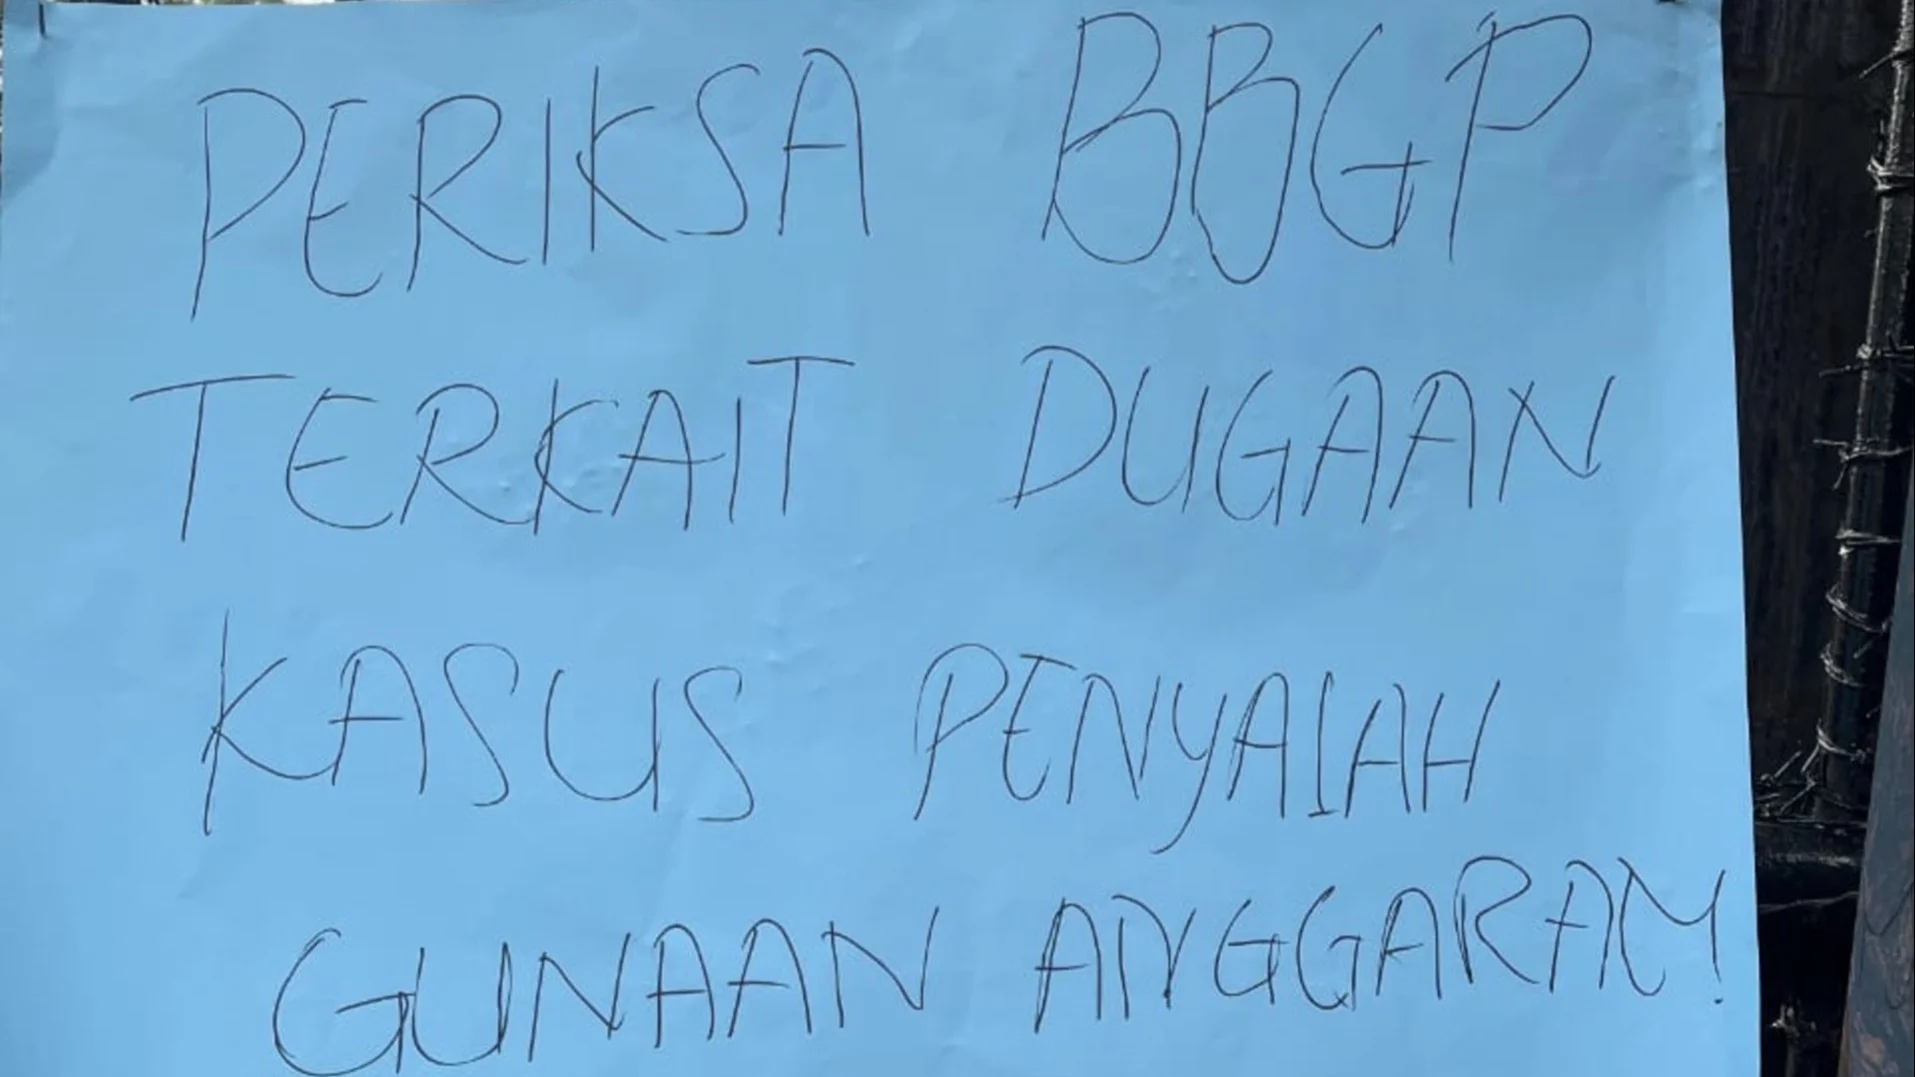 PERIKSA BBGP
TERKAIT DUGAAN
KASUS PENYALAH
GUNAAN ANGGARAN!